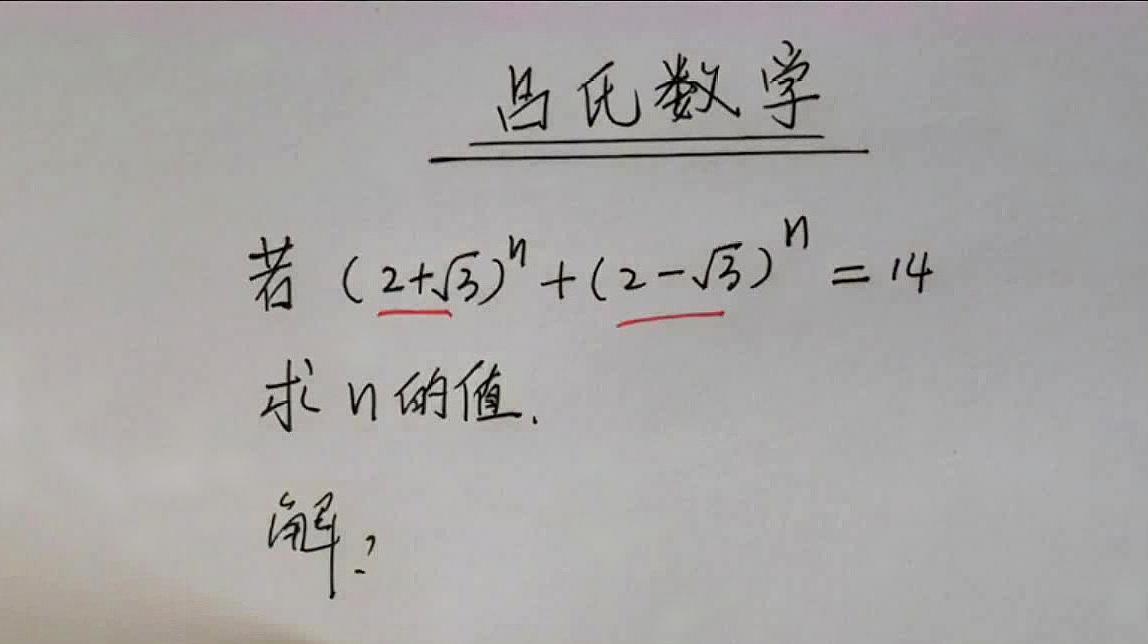 吕氏数学
若 (2+√3)ⁿ+(2-√3)ⁿ=14
求n的值.
解: